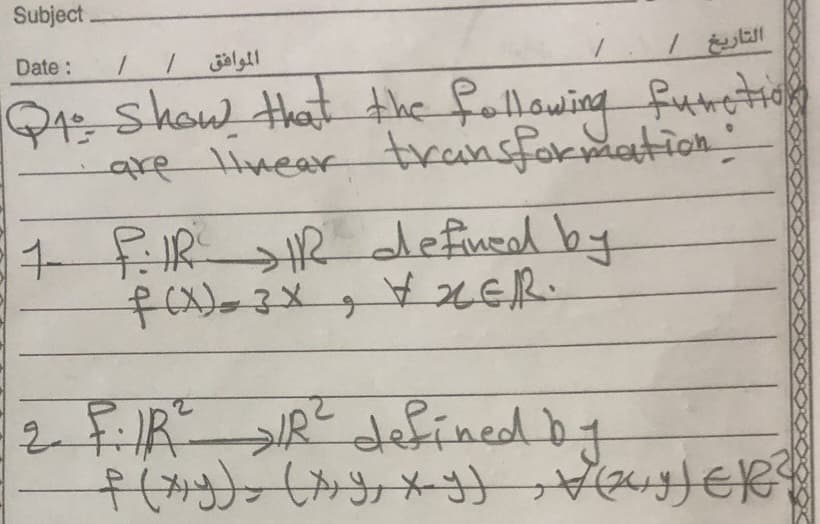 Subject
Date : / / الموافق / / التاريخ
Q1:- Show that the following function
are linear transformation:
1- f: ℝ² → ℝ defined by
f(x) = 3x , ∀ x ∈ ℝ.
2- f: ℝ² → ℝ² defined by
f(x,y) = (x, y, x-y) , ∀(x,y) ∈ ℝ²